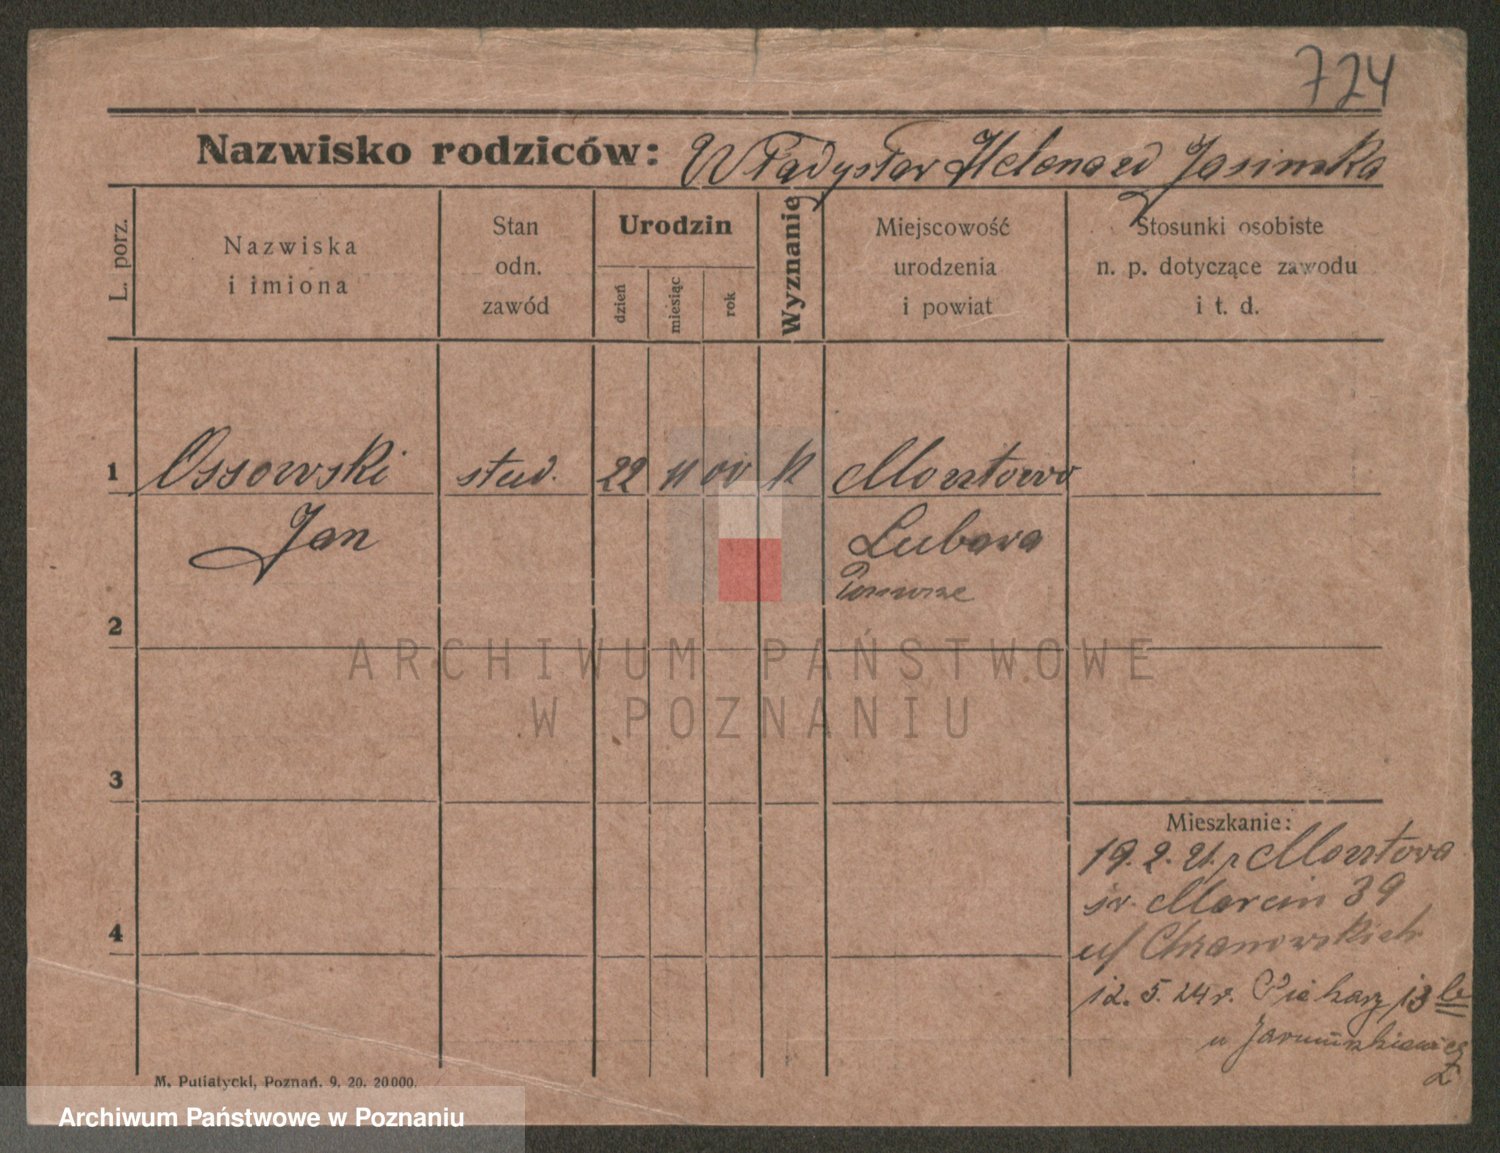 724
Nazwisko rodziców: Władysław Helena zd Jasinska
L. porz.
Nazwiska
i imiona
Stan
odn.
zawód
Urodzin
dzień
miesiąc
rok
Wyznanie
Miejscowość
urodzenia
i powiat
Stosunki osobiste
n. p. dotyczące zawodu
i t. d.
1 Ossowski stud. 22 11 00 k Mosztowo
Jan Lubawa
Pomorze
2
ARCHIWUM PAŃSTWOWE
W POZNANIU
3
Mieszkanie:
19. 2. 21. r
św. Marcin 39
u/ Chranowskich
4
12. 5. 24 r. Piekary 13 b
u
M. Putiatycki, Poznań. 9. 20. 20000.
Archiwum Państwowe w Poznaniu